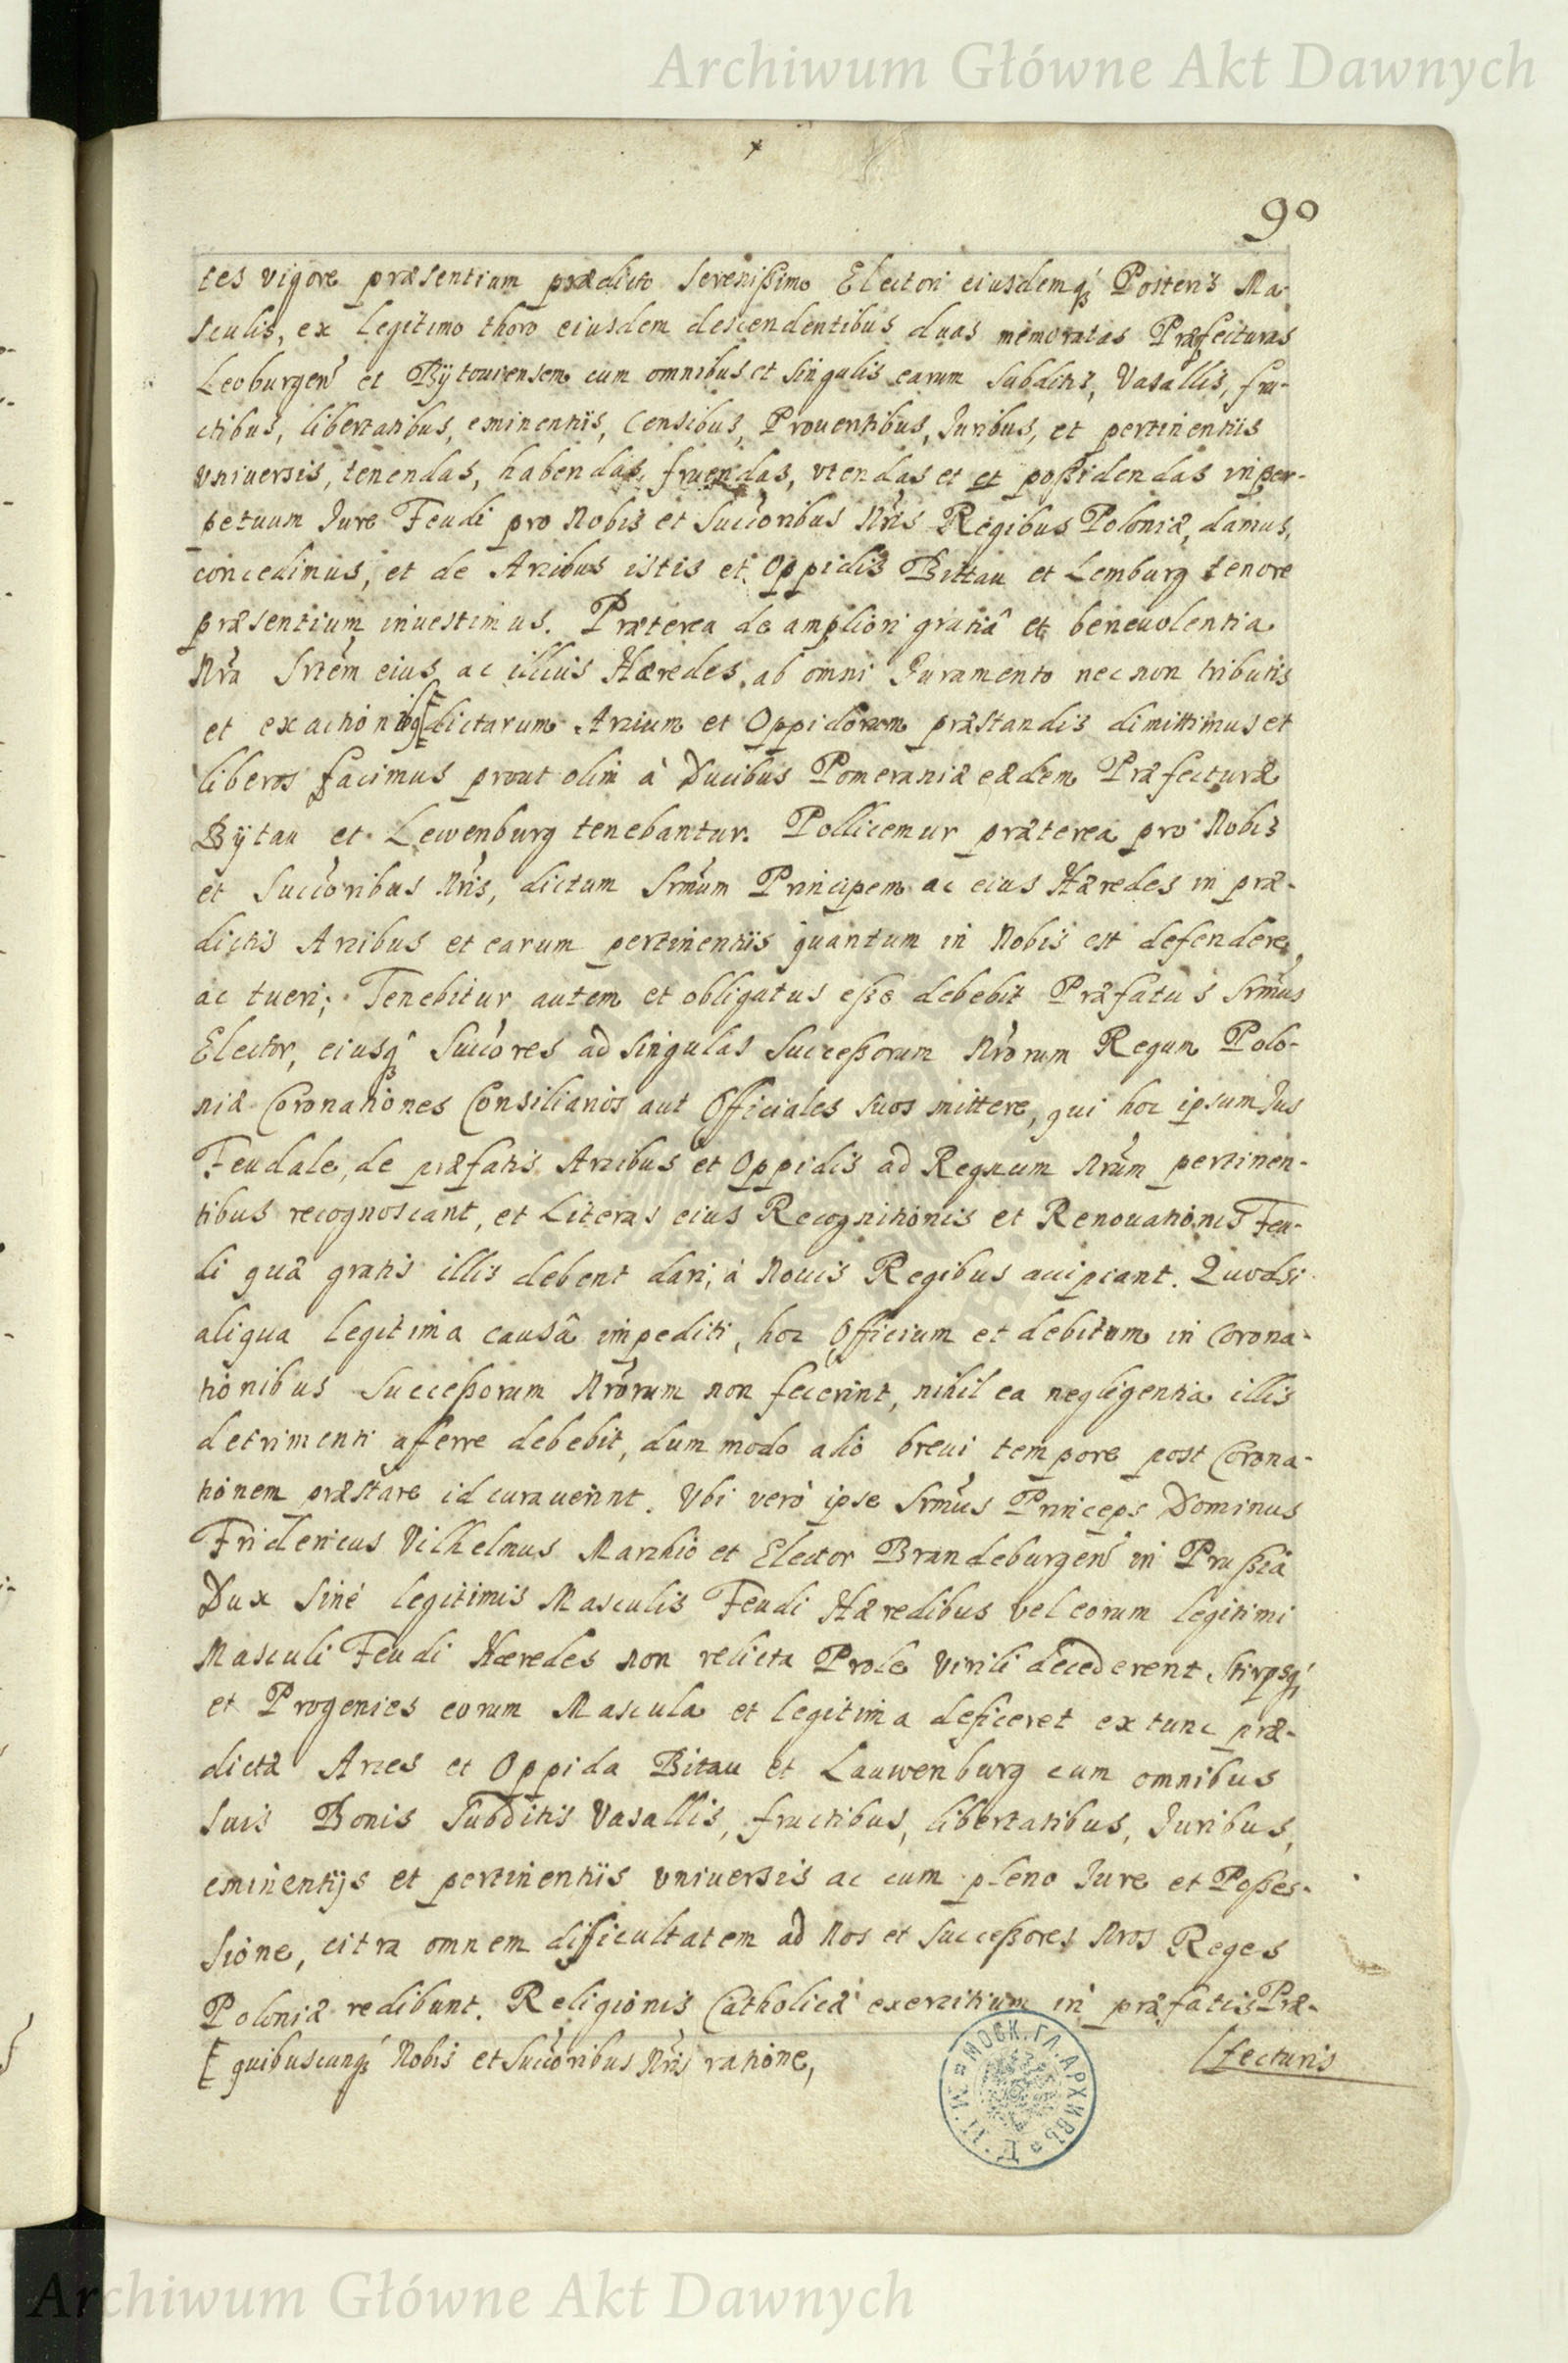 Archiwum Główne Akt Dawnych
90
tes vigore præsentium prædicto Serenißimo Electori eiusdemq́ʒ Posteris Ma-
sculis, ex legitimo thoro eiusdem descendentibus duas memoratas Præfecturas
Leoburgen̄ et Bÿtouiensem cum omnibus et singulis earum Subditis, Vasallis, fru-
ctibus, libertatibus, eminentiis, Censibus, Prouentibus, Iuribus, et pertinentiis
vniuersis, tenendas, habendas, fruendas, vtendas et et poßidendas in per-
petuum Iure Feudi pro Nobis et Succ̄oribus Nr̄is Regibus Poloniæ, damus,
concedimus, et de Arcibus istis et Oppidis Bittau et Lemburg tenore
præsentium inuestimus. Præterea de ampliori gratiâ et beneuolentia
Nr̄a Srtēm eius ac illius Hæredes, ab omni Iuramento nec non tributis
et exactionibq [dictarum Arcium et Oppidorum præstandis dimittimus et
liberos facimus prout olim à Ducibus Pomeraniæ eædem Præfecturæ
Bÿtau et Lewenburg tenebantur. Pollicemur præterea pro Nobis
et Succ̄oribus Nr̄is, dictum Srm̄um Principem ac eius Hæredes in præ-
dictis Arcibus et earum pertinentiis quantum in Nobis est defendere,
ac tueri; Tenebitur autem et obligatus eße debebit Præfatus Srm̄us
Elector, eiusq́ʒ Succ̄ores ad singulas Succeßorum Nr̄orum Regum Polo-
niæ Coronationes Consiliarios aut Officiales suos mittere, qui hoc ipsum Ius
Feudale, de præfatis Arcibus et Oppidis ad Regnum Nr̄um pertinen-
tibus recognoscant, et Literas eius Recognitionis et Renouationis Feu-
di quæ gratis illis debent dari, à Nouis Regibus accipiant. Quodsi
aliqua legitima causâ impediti, hoc Officium et debitum in Corona-
tionibus Succeßorum Nr̄orum non fecerint, nihil ea negligentia illis
detrimenti aferre debebit, dum modo alio breui tempore post Corona-
tionem præstare id curauerint. Vbi verò ipse Srm̄us Princeps Dominus
Fridericus Vilhelmus Marchio et Elector Brandeburgen̄ in Prußia
Dux Sinè legitimis Masculis Feudi Hæredibus vel eorum legitimi
Masculi Feudi Hæredes non relicta Prole Virili decederent Stirpsq́ʒ
et Progenies eorum Mascula et legitima deficeret ex tunc præ-
dictæ Arces et Oppida Bitau et Lauwenburg cum omnibus
suis Bonis Subditis Vasallis, fructibus, libertatibus, Iuribus,
eminentijs et pertinentiis vniuersis ac cum pleno Iure et Poßes-
sione, citra omnem difficultatem ad Nos et Succeßores Nros Reges
Poloniæ redibunt. Religionis Catholicæ exercitium in præfatis Præ-
[fecturis
[ quibuscunq́ʒ Nobis et Succ̄oribus Nr̄is ratione,
МОСК. ГЛ. АРХИВЪ
Archiwum Główne Akt Dawnych